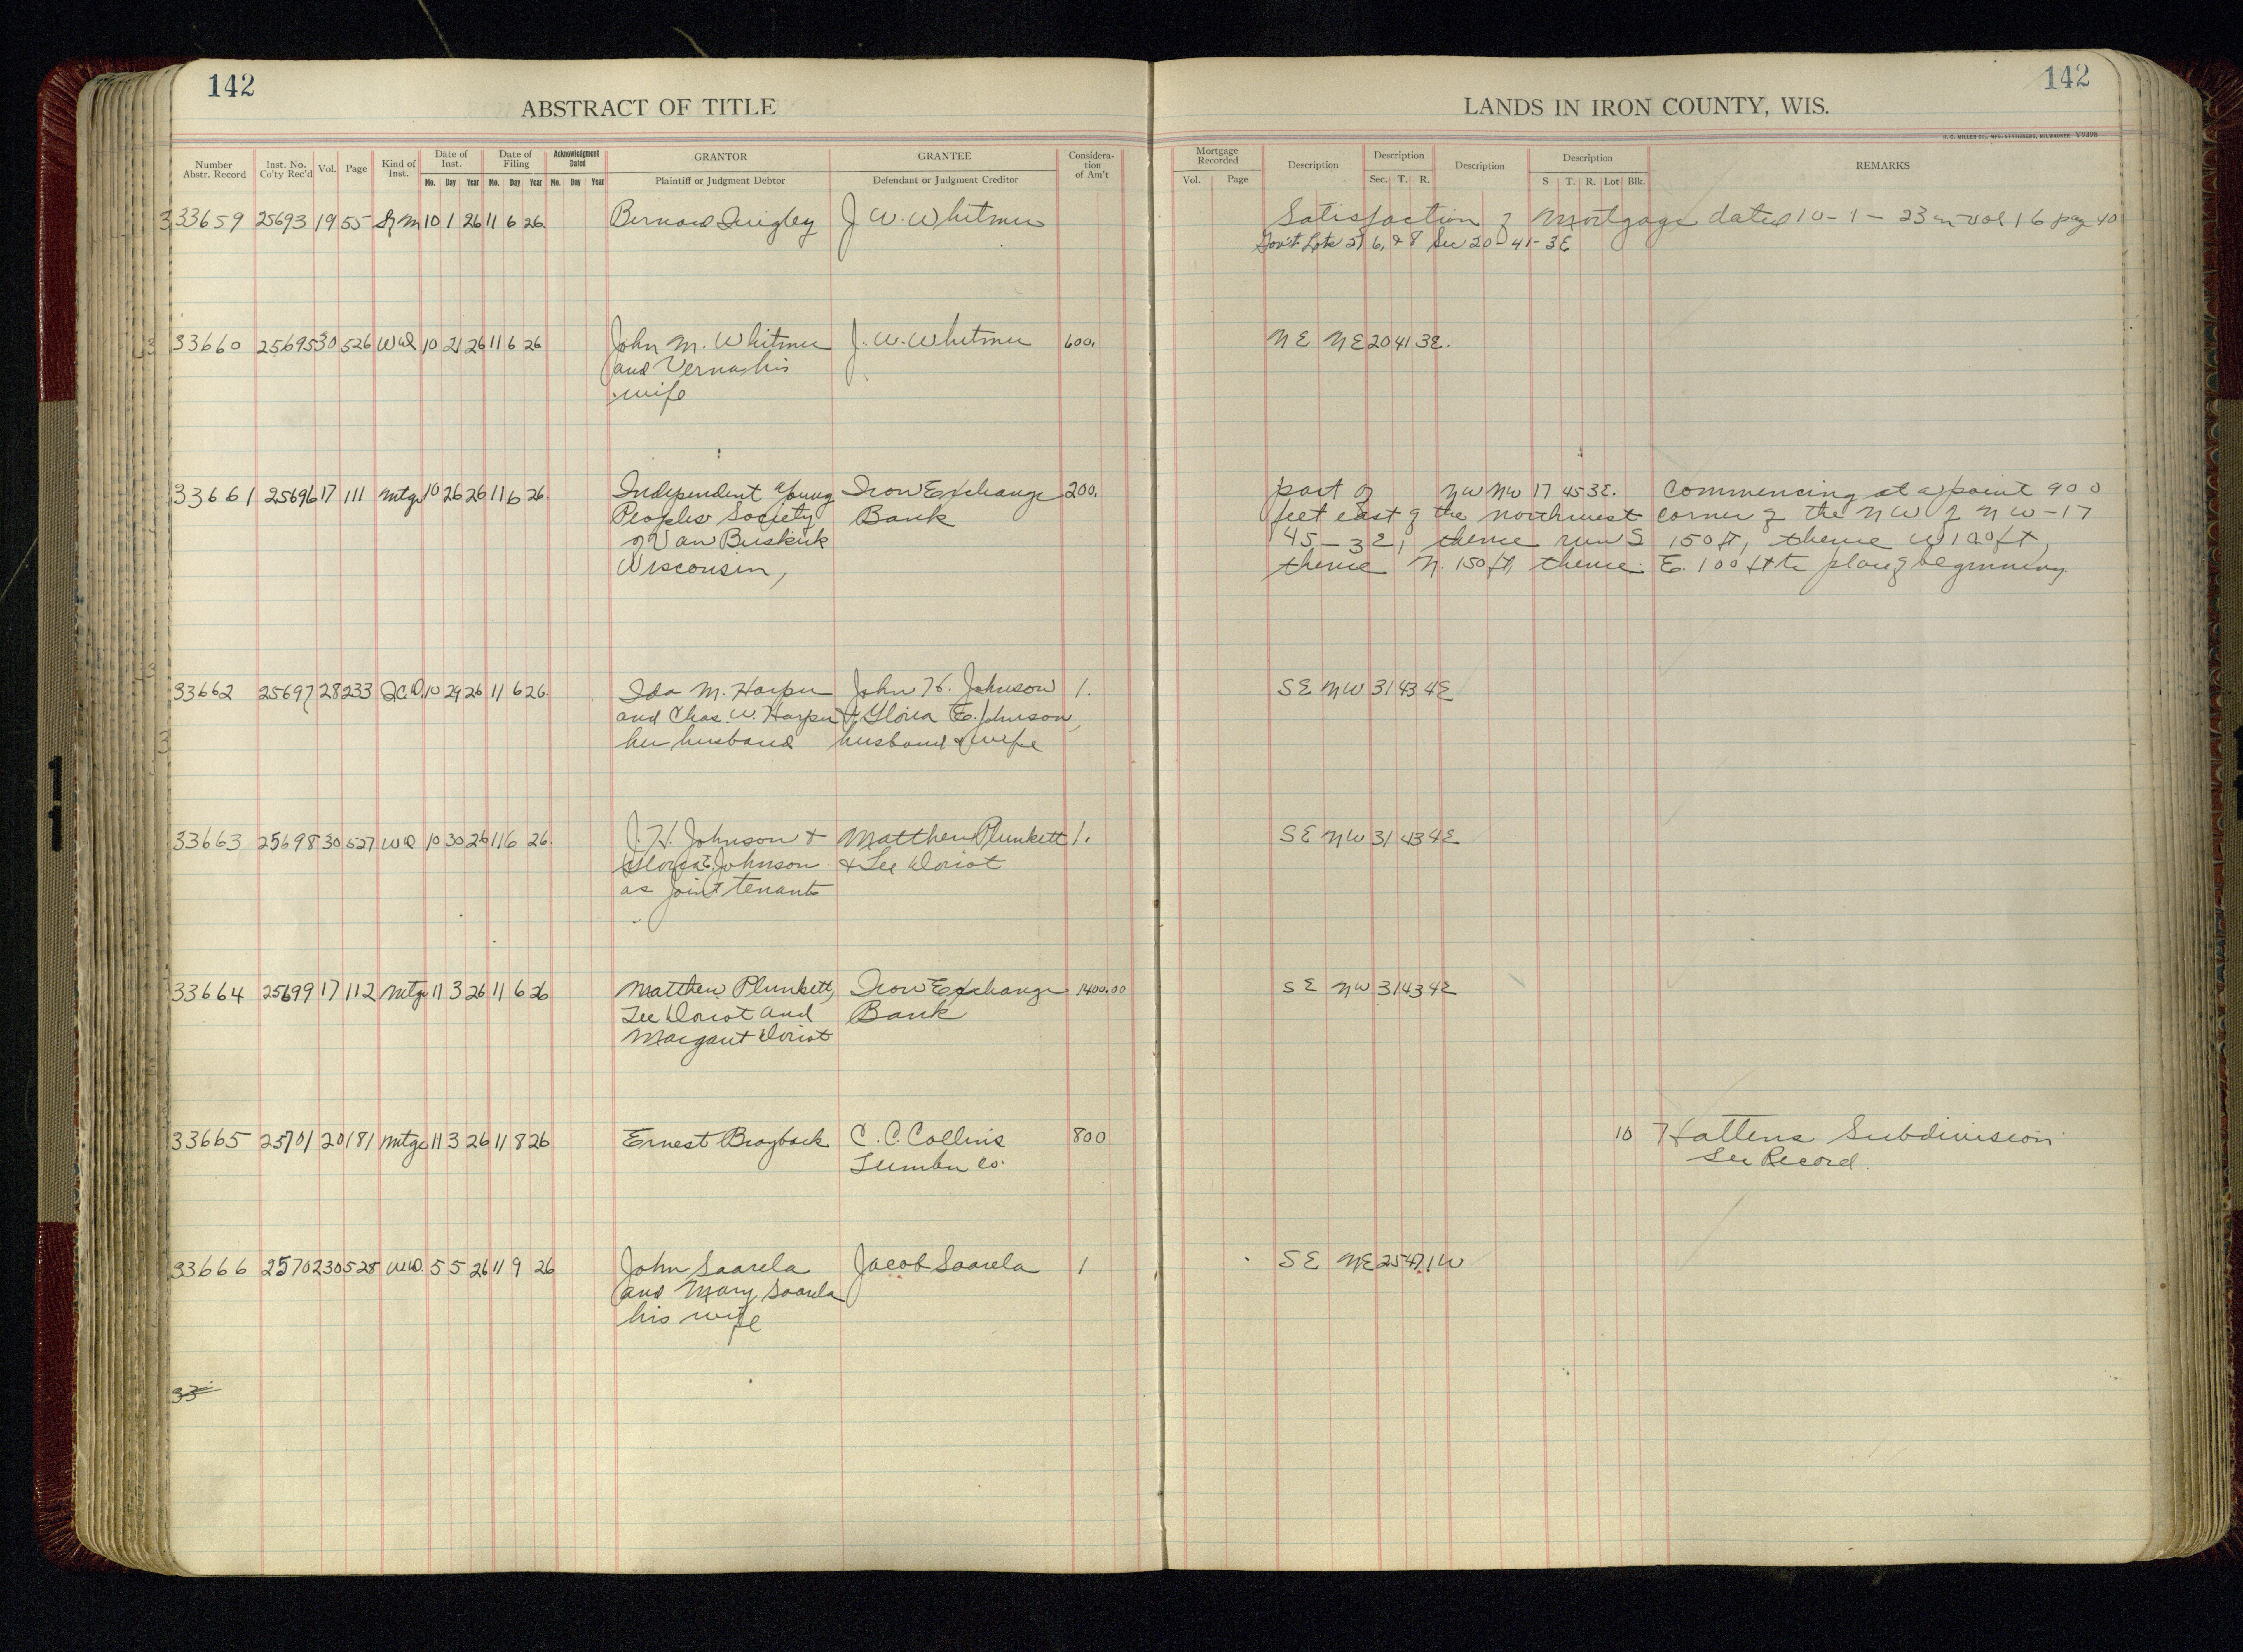 142
142
ABSTRACT OF TITLE
LANDS IN IRON COUNTY, WIS.
H. C. MILLER CO., MFG. STATIONERS, MILWAUKEE V9398
Number Abstr. Record | Inst. No. Co'ty Rec'd | Vol. | Page | Kind of Inst. | Date of Inst. Mo. Day Year | Date of Filing Mo. Day Year | Acknowledgment Dated Mo. Day Year | GRANTOR Plaintiff or Judgment Debtor | GRANTEE Defendant or Judgment Creditor | Considera-tion of Am't | Mortgage Recorded Vol. Page | Description | Description Sec. T. R. | Description | Description S T. R. Lot Blk. | REMARKS
33659 25693 19 55 S of M 10 1 26 11 6 26. Bernard Quigley J W. Whitmer Satisfaction of Mortgage dated 10-1-23 in vol 16 pag 40
Gov't Lots 6, & 8 Sec 20-41-3E
33660 25695 30 526 WD 10 21 26 11 6 26 John M. Whitmer J. W. Whitmer 600. NE NE 20 41 3E.
and Verna, his
wife
33661 25696 17 111 Mtge 10 26 26 11 6 26. Independent Young Iron Exchange 200. part of NW NW 17 45 3E. Commencing at a point 900
Peoples Society Bank feet east of the northwest corner of the NW of NW-17
of Van Buskirk 45-3E, thence run S 150 ft, thence W 100 ft,
Wisconsin, thence N. 150 ft, thence E. 100 ft to place of beginning.
33662 25697 28 233 Q.C.D. 10 29 26 11 6 26. Ida M. Harper John H. Johnson 1. SE NW 31 43 4E
and Chas. W. Harper & Gloria E. Johnson,
her husband husband & wife
33663 25698 30 527 WD 10 30 26 11 6 26. J. H. Johnson & Matthew Plunkett 1. SE NW 31 43 4E
Gloria E. Johnson & Lee Doriot
as joint tenants
33664 25699 17 112 Mtge 11 3 26 11 6 26 Matthew Plunkett, Iron Exchange 1400.00 SE NW 31 43 4E
Lee Doriot and Bank
Margaret Doriot
33665 25701 20 181 Mtge 11 3 26 11 8 26 Ernest Brayback C. C. Collins 800 10 Hattens Subdivision
Lumber Co. See Record.
33666 25702 30 528 WD. 5 5 26 11 9 26 John Saarela Jacob Saarela 1 SE NE 25 47 1W
and Mary Saarela
his wife
33